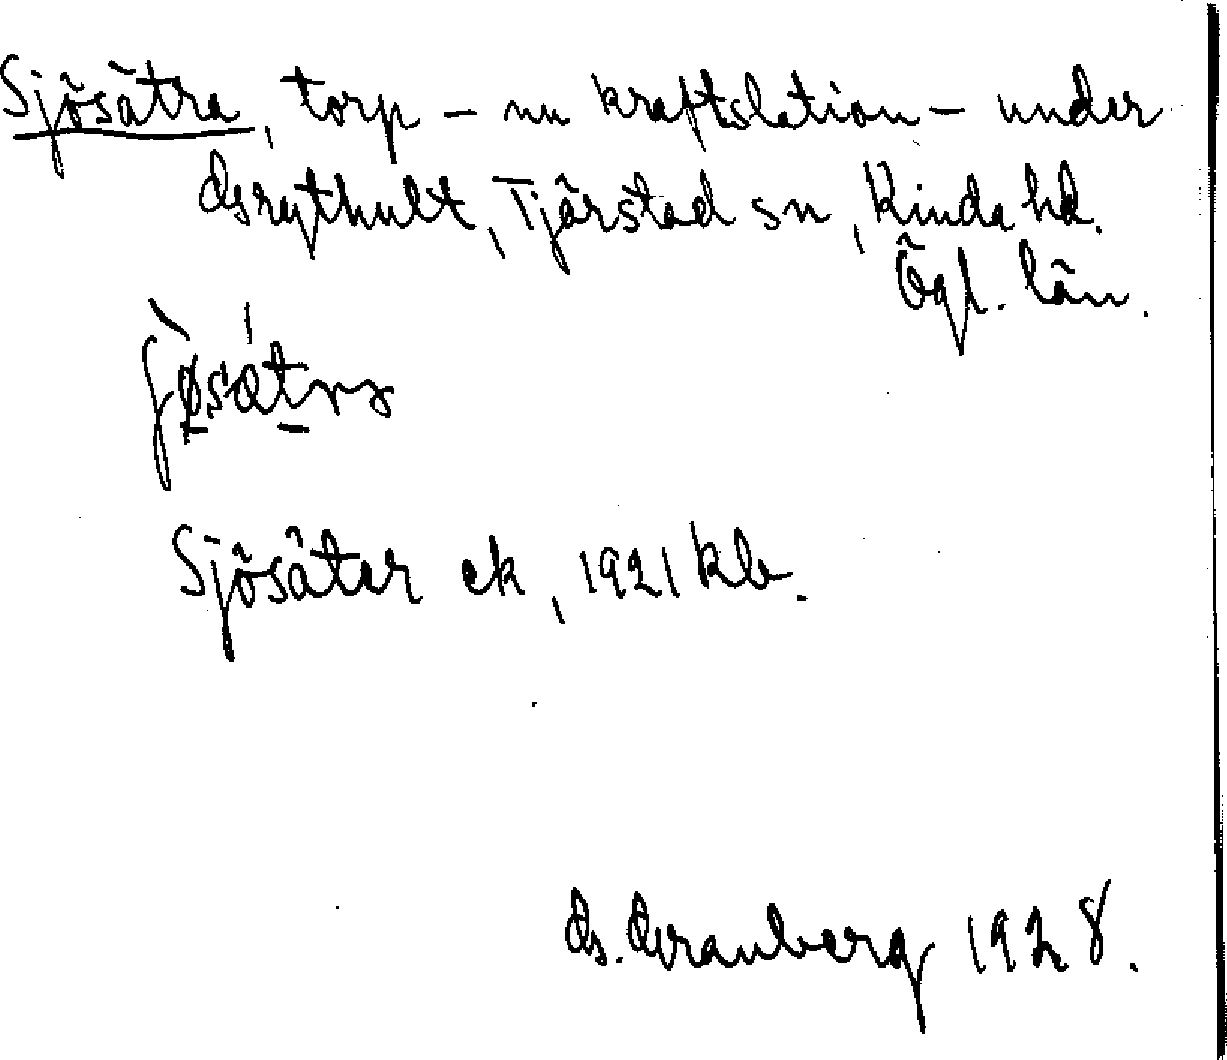 Sjösätra, torp – nu kraftstation – under
Grythult, Tjärstad sn, Kinda hd.
Ögl. län.
Sjösäter ek, 1921 kb.
G. Granberg 1928.